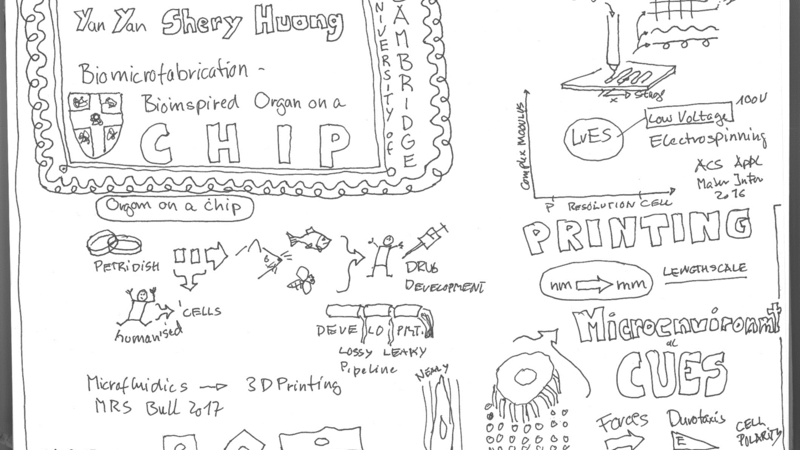 Yan Yan Shery Huang
Biomicrofabrication -
Bioinspired Organ on a
CHIP
UNIVERSITY of
CAMBRIDGE
Organ on a chip
PETRIDISH
CELLS
humanised
DRUG
DEVELOPMENT
DEVE LO PMT.
LOSSY LEAKY
Pipeline
Microfluidics → 3D Printing
MRS Bull 2017
x → Stage
COMPLEX MODULUS
LvES
Low Voltage 100V
Electrospinning
ACS Appl
Mater Inter
2016
P RESOLUTION CELL
PRINTING
nm → mm
LENGTHSCALE
CUES
Forces
Durotaxis
E
CELL
POLARITY